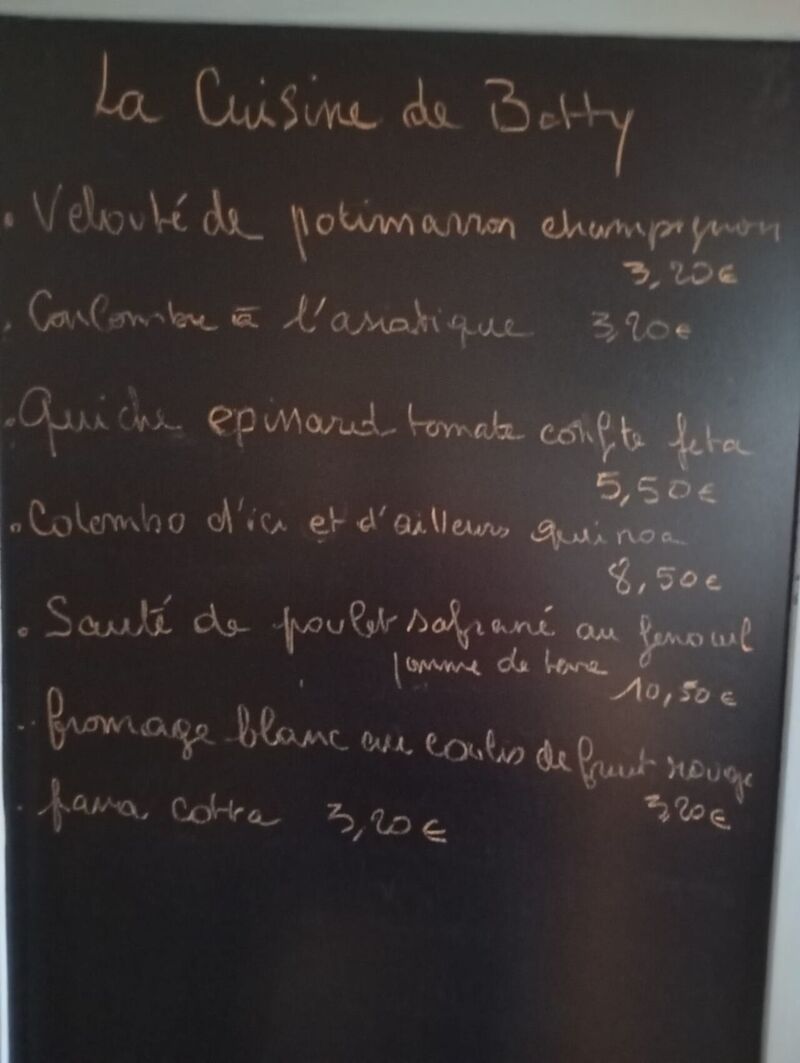 La Cuisine de Betty
• Velouté de potimarron champignon
3,20€
• Concombre à l'asiatique 3,20€
• Quiche epinard tomate confite feta
5,50€
• Colombo d'ici et d'ailleurs quinoa
8,50€
• Sauté de poulet safrané au fenouil
pomme de terre
10,50€
• fromage blanc au coulis de fruit rouge
3,20€
• pana cotta 3,20€